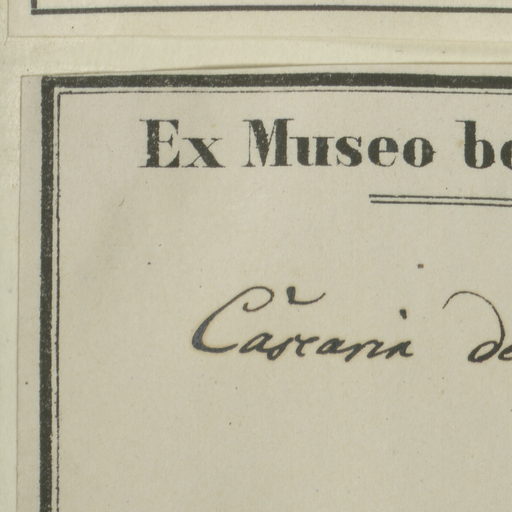 Ex Museo be
Cascaria de